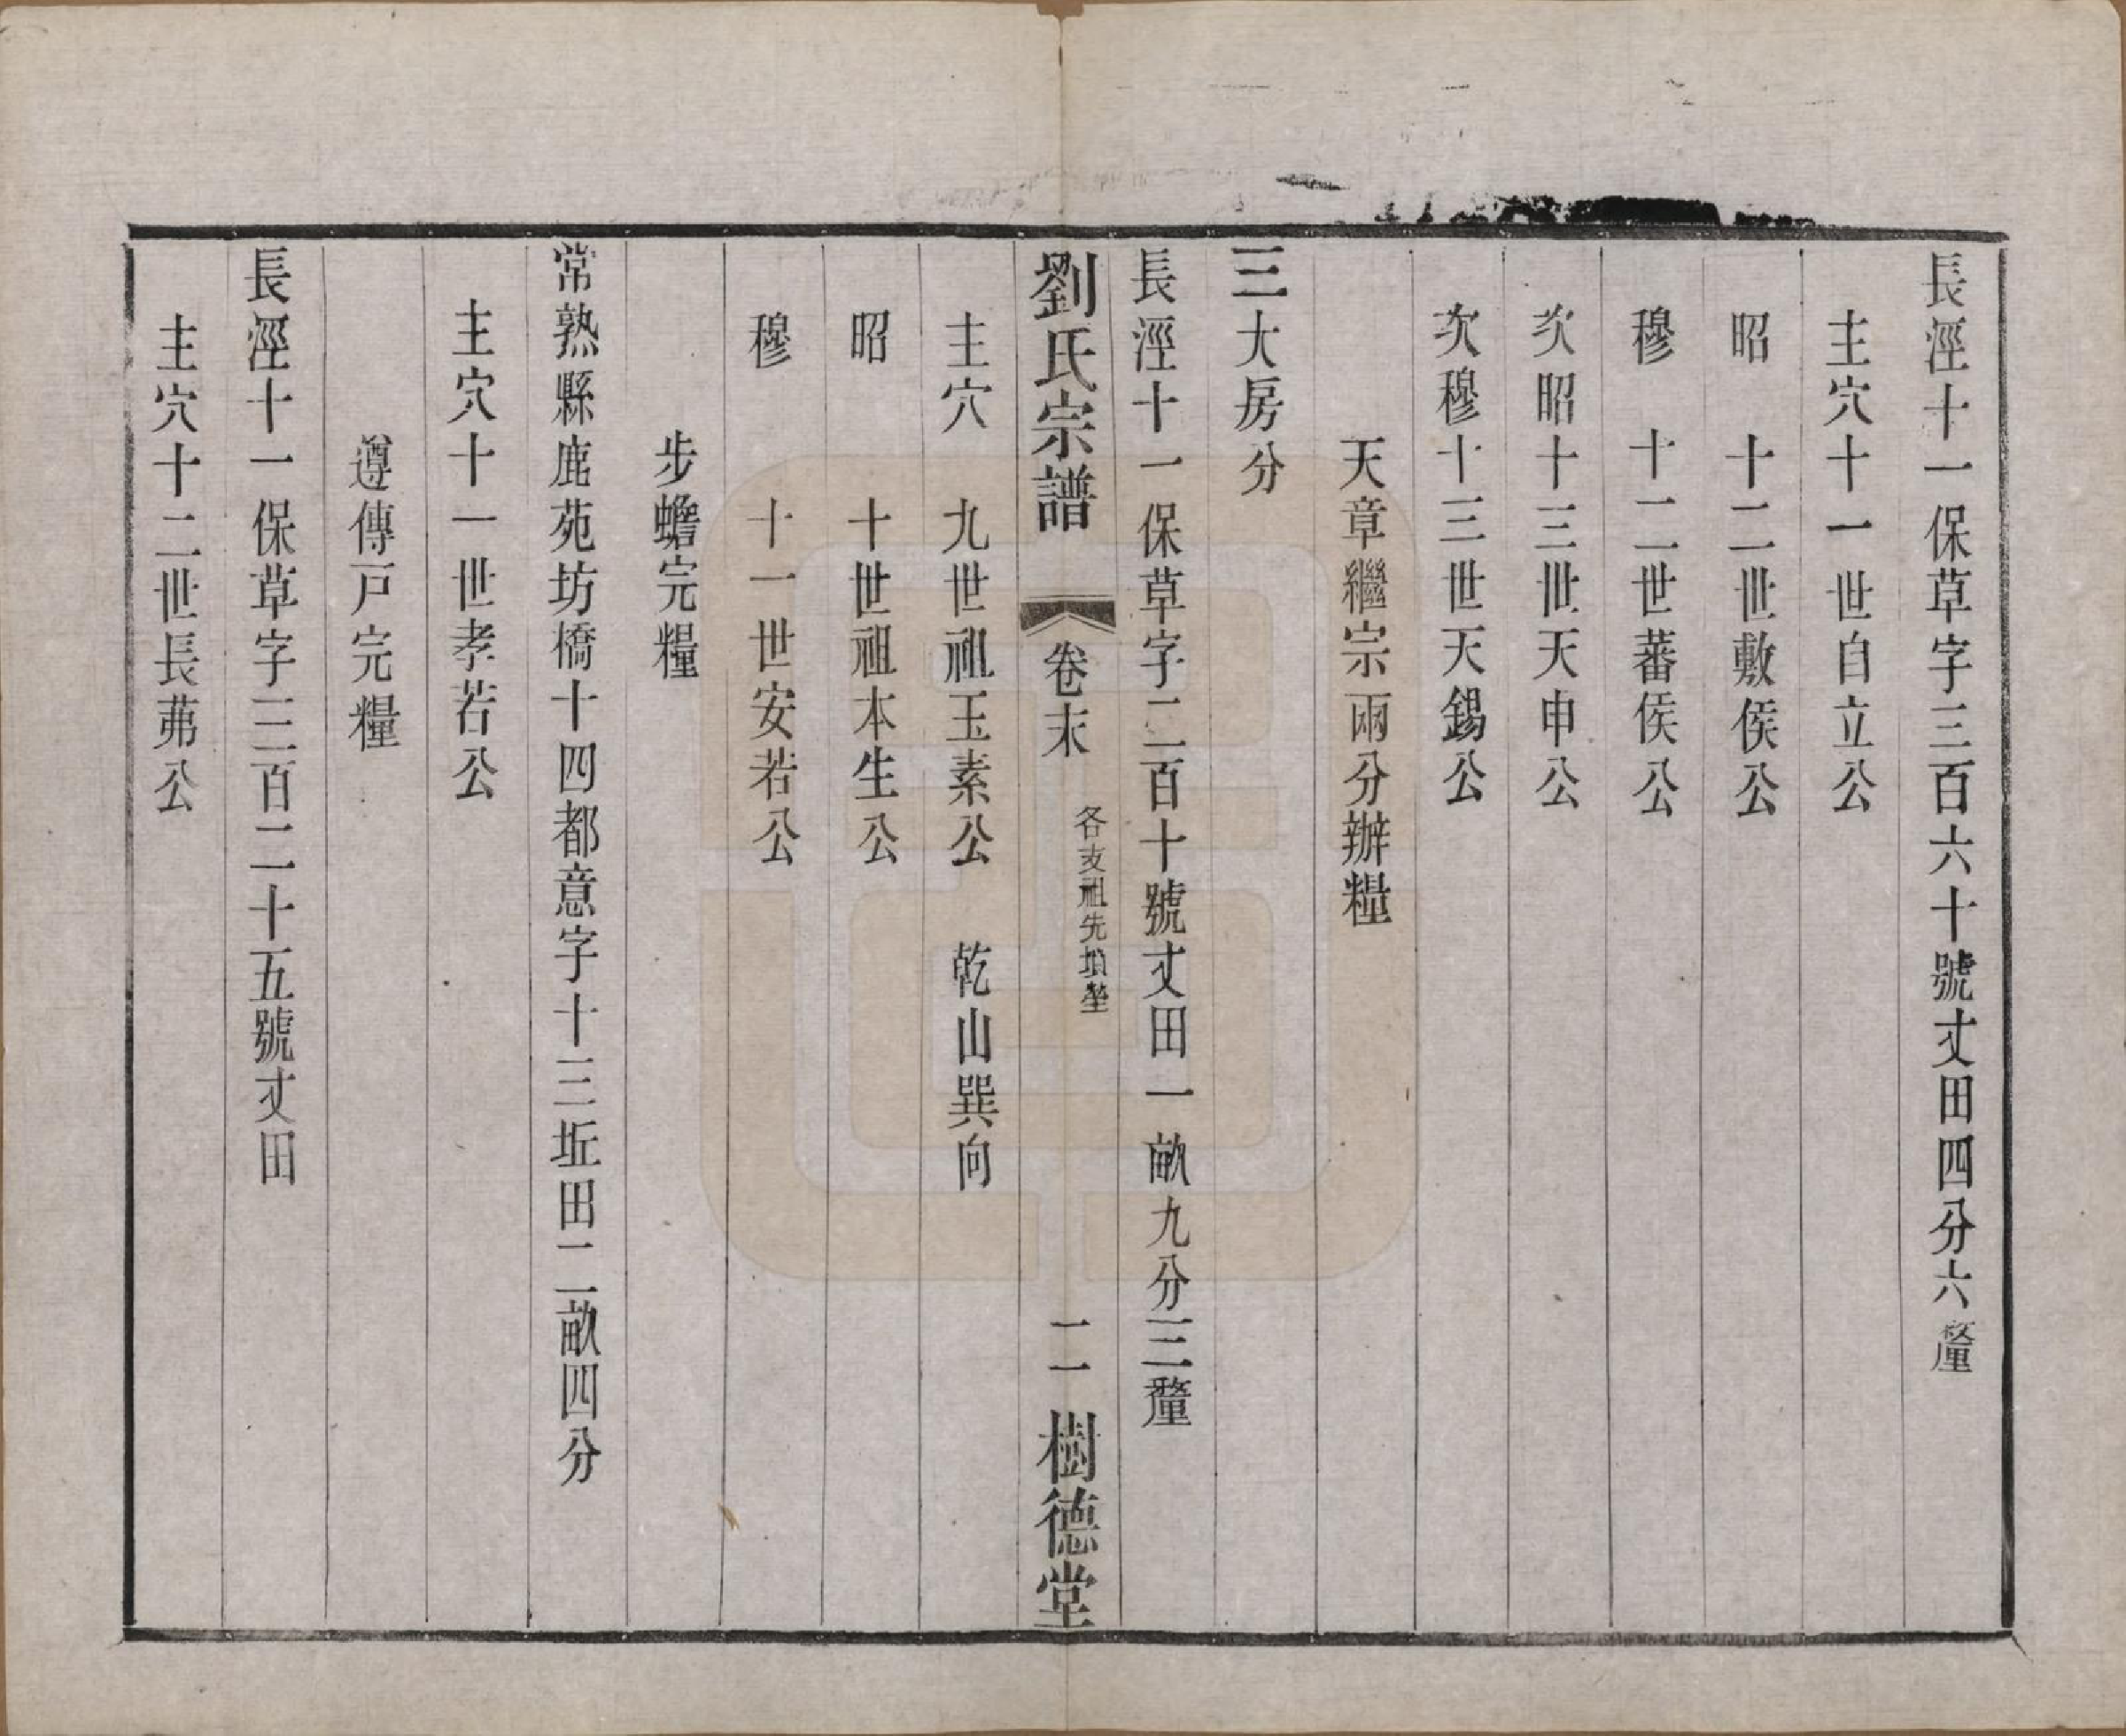 長涇十一保草字三百六十號丈田四分六釐
主穴十一世自立公
昭　十二世敷侯公
穆　十二世蕃侯公
次昭十三世天申公
次穆十三世天錫公
天章繼宗兩分辦糧
三大房分
長涇十一保草字二百十號丈田一畝九分三釐
劉氏宗譜　卷末　各支祖先墳塋　二　樹德堂
主穴　九世祖玉素公　乾山巽向
昭　　十世祖本生公
穆　　十一世安若公
步蟾完糧
常熟縣鹿苑坊橋十四都意字十三坵田二畝四分
主穴十一世孝若公
遵傳戸完糧
長涇十一保草字三百二十五號丈田
主穴十二世長茀公